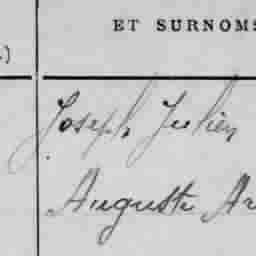 ET SURNOMS
.)
Joseph Julien
Auguste Ar